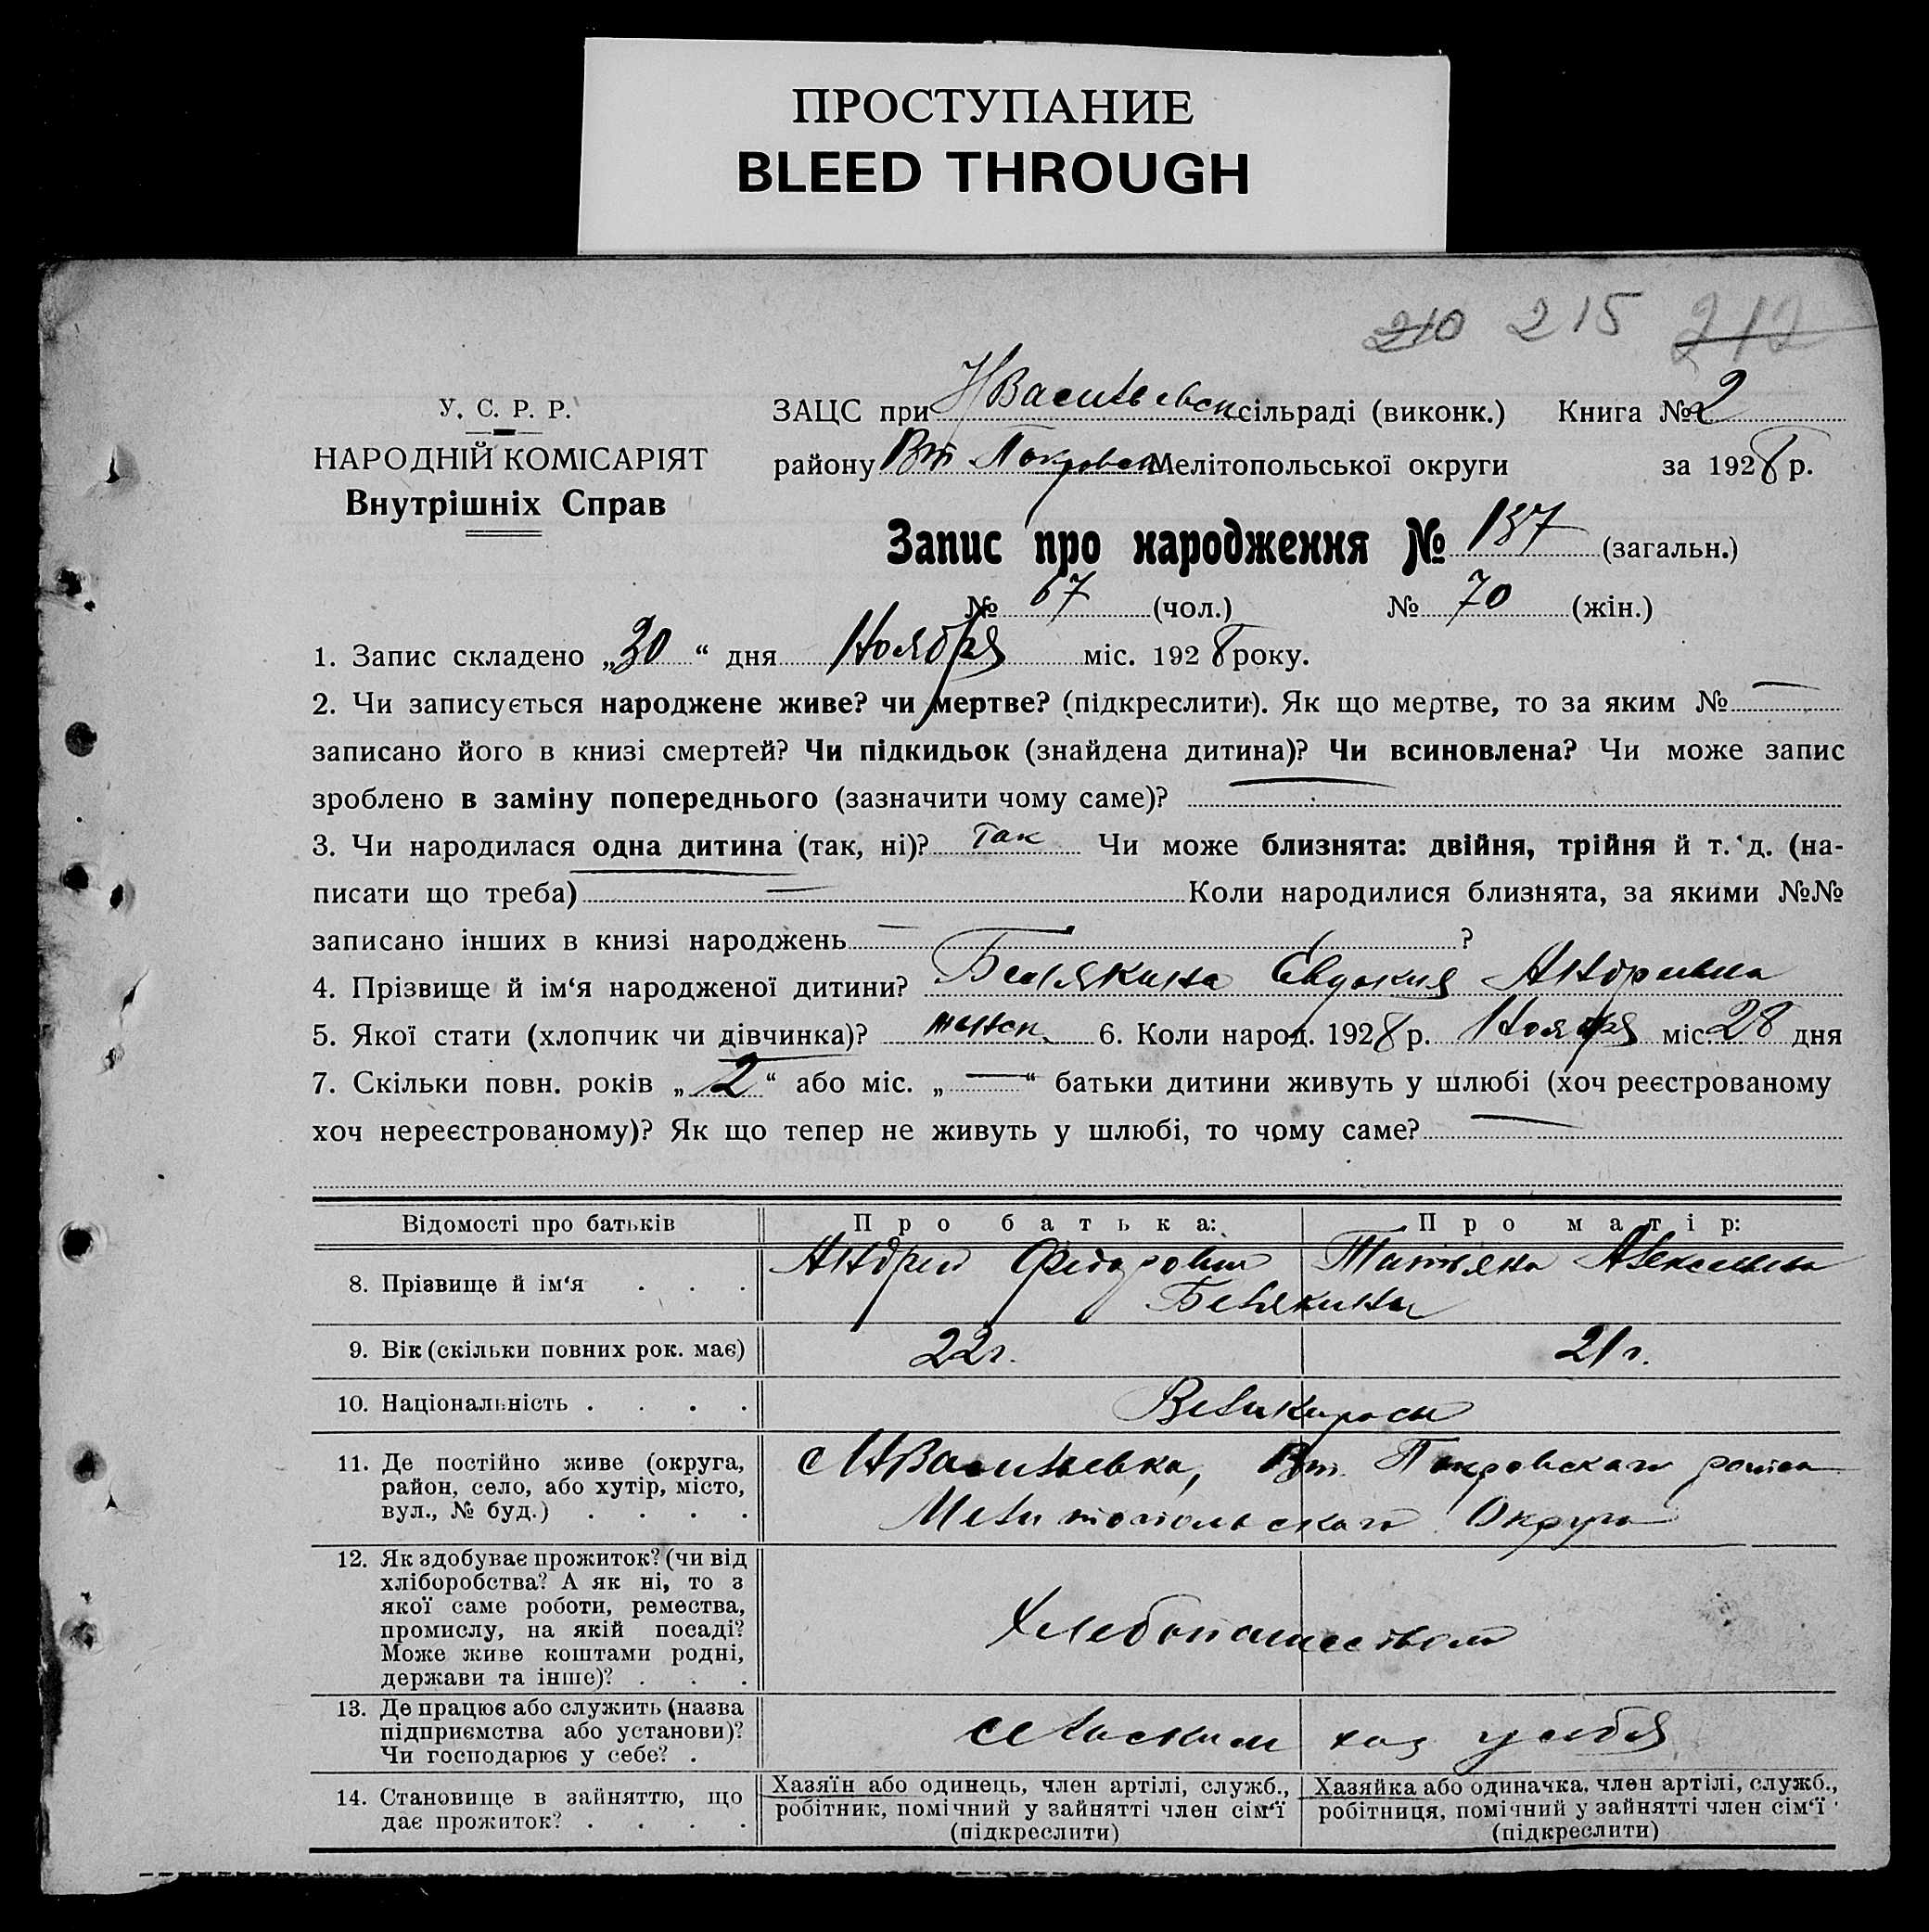 ПРОСТУПАНИЕ
BLEED THROUGH
210 215 212
У. С. Р. Р.
НАРОДНІЙ КОМІСАРІЯТ
Внутрішніх Справ
ЗАЦС при НВасильевск сільраді (виконк.) Книга № 2
району Вт Покровск Мелітопольської округи за 1928 р.
Запис про народження № 137 (загальн.)
№ 67 (чол.) № 70 (жін.)
1. Запис складено „30“ дня Ноября міс. 1928 року.
2. Чи записується народжене живе? чи мертве? (підкреслити). Як що мертве, то за яким № —
записано його в книзі смертей? Чи підкидьок (знайдена дитина)? Чи всиновлена? Чи може запис
зроблено в заміну попереднього (зазначити чому саме)? —
3. Чи народилася одна дитина (так, ні)? так Чи може близнята: двійня, трійня й т. д. (на-
писати що треба) — Коли народилися близнята, за якими №№
записано інших в книзі народжень — ?
4. Прізвище й ім‘я народженої дитини? Белякина Евдокия Андревна
5. Якої стати (хлопчик чи дівчинка)? женск. 6. Коли народ. 1928 р. Ноября міс. 28 дня
7. Скільки повн. років „2“ або міс. „—“ батьки дитини живуть у шлюбі (хоч реєстрованому
хоч нереєстрованому)? Як що тепер не живуть у шлюбі, то чому саме? —
Відомості про батьків Про батька: Про матір:
8. Прізвище й ім‘я . . . Андрей Федорович Татьяна Алексеевна
Белякины
9. Вік (скільки повних рок. має) 22 г. 21 г.
10. Національність . . . . Великоросы
11. Де постійно живе (округа, район, село, або хутір, місто, вул., № буд.) . . . . с НВасильевка, Вт. Покровскаго района
Мелитопольскаго Округа
12. Як здобуває прожиток? (чи від
хліборобства? А як ні, то з
якої саме роботи, ремества,
промислу, на якій посаді?
Може живе коштами родні,
держави та інше)? . . . Хлебопашеством
13. Де працює або служить (назва
підприємства або установи)?
Чи господарює у себе? . сельским хоз у себя
14. Становище в зайняттю, що
дає прожиток? . . . .
Хазяїн або одинець, член артілі, служб.,
робітник, помічний у зайнятті член сім‘ї
(підкреслити)
Хазяйка або одиначка, член артілі, служб.,
робітниця, помічний у зайнятті член сім‘ї
(підкреслити)